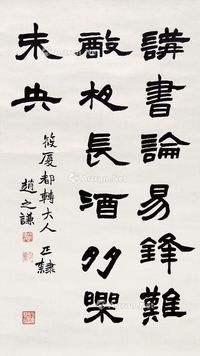 講書論易鋒難
敵夜長酒多樂
未央
筱廈都轉大人正隸
趙之謙